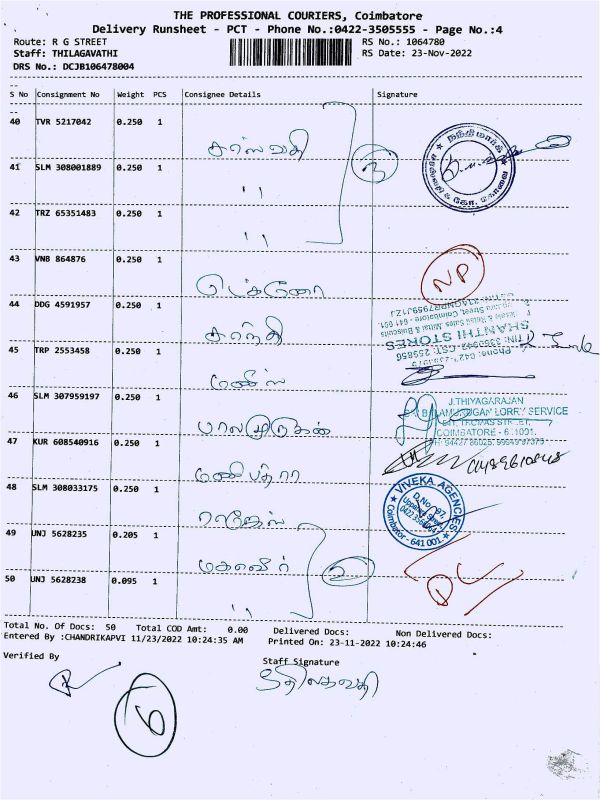 THE PROFESSIONAL COURIERS, Coimbatore
Delivery Runsheet - PCT - Phone No.:0422-3505555 - Page No.:4
Route: R G STREET RS No.: 1064780
Staff: THILAGAVATHI RS Date: 23-Nov-2022
DRS No.: DCJB106478004
S No Consignment No Weight PCS Consignee Details Signature
40 TVR 5217042 0.250 1
சரஸ்வதி
41 SLM 308001889 0.250 1
" 
42 TRZ 65351483 0.250 1
"
43 VNB 864876 0.250 1
NP
44 DDG 4591957 0.250 1
சாந்தி
SHANTHI STORES
45 TRP 2553458 0.250 1
46 SLM 307959197 0.250 1
J.THIYAGARAJAN
BALAMURUGAN LORRY SERVICE
பாலமுருகன்
47 KUR 608540916 0.250 1
மணிபத்ரா
48 SLM 308033175 0.250 1
VIVEKA AGENCIES
Coimbator - 641 001.
ராஜேஸ்
49 UNJ 5628235 0.205 1
மகாவீர் 2
50 UNJ 5628238 0.095 1
"
Total No. Of Docs: 50 Total COD Amt: 0.00 Delivered Docs: Non Delivered Docs:
Entered By :CHANDRIKAPVI 11/23/2022 10:24:35 AM Printed On: 23-11-2022 10:24:46
Verified By Staff Signature
திலகவதி
6